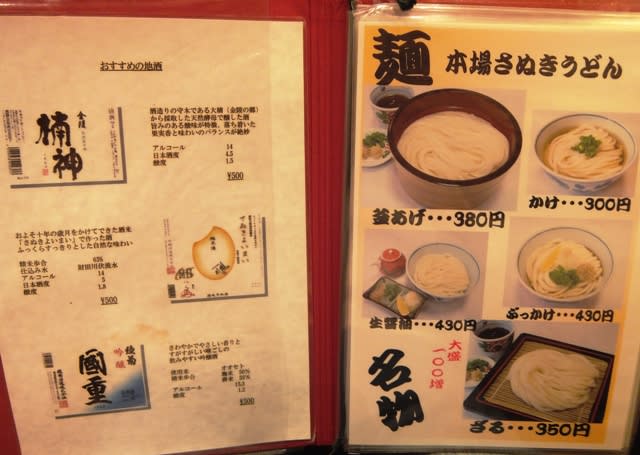 おすすめの地酒
金陵
楠神
酒造りの守木である大楠（金陵の郷）
から採取した天然酵母で醸した酒
旨みのある酸味が特徴。落ち着いた
果実香と味わいのバランスが絶妙
アルコール 14
日本酒度 4.5
酸度 1.5
¥500
およそ十年の歳月をかけてできた酒米
「さぬきよいまい」で作った酒
ふっくらすっきりとした自然な味わい
精米歩合 63%
仕込み水 財田川伏流水
アルコール 14
日本酒度
酸度 1.8
¥500
さぬきよいまい
綾菊
吟醸
國重
さわやかでやさしい香りと
すがすがしい喉ごしの
飲みやすい吟醸酒
使用米 オオセト
精米歩合 麹米 50%
掛米 55%
アルコール 15.3
酸度 1.2
¥500
麺 本場さぬきうどん
釜あげ・・・380円
かけ・・・300円
生醤油・・・430円
ぶっかけ・・・430円
大盛
一〇〇増
名物
ざる・・・350円